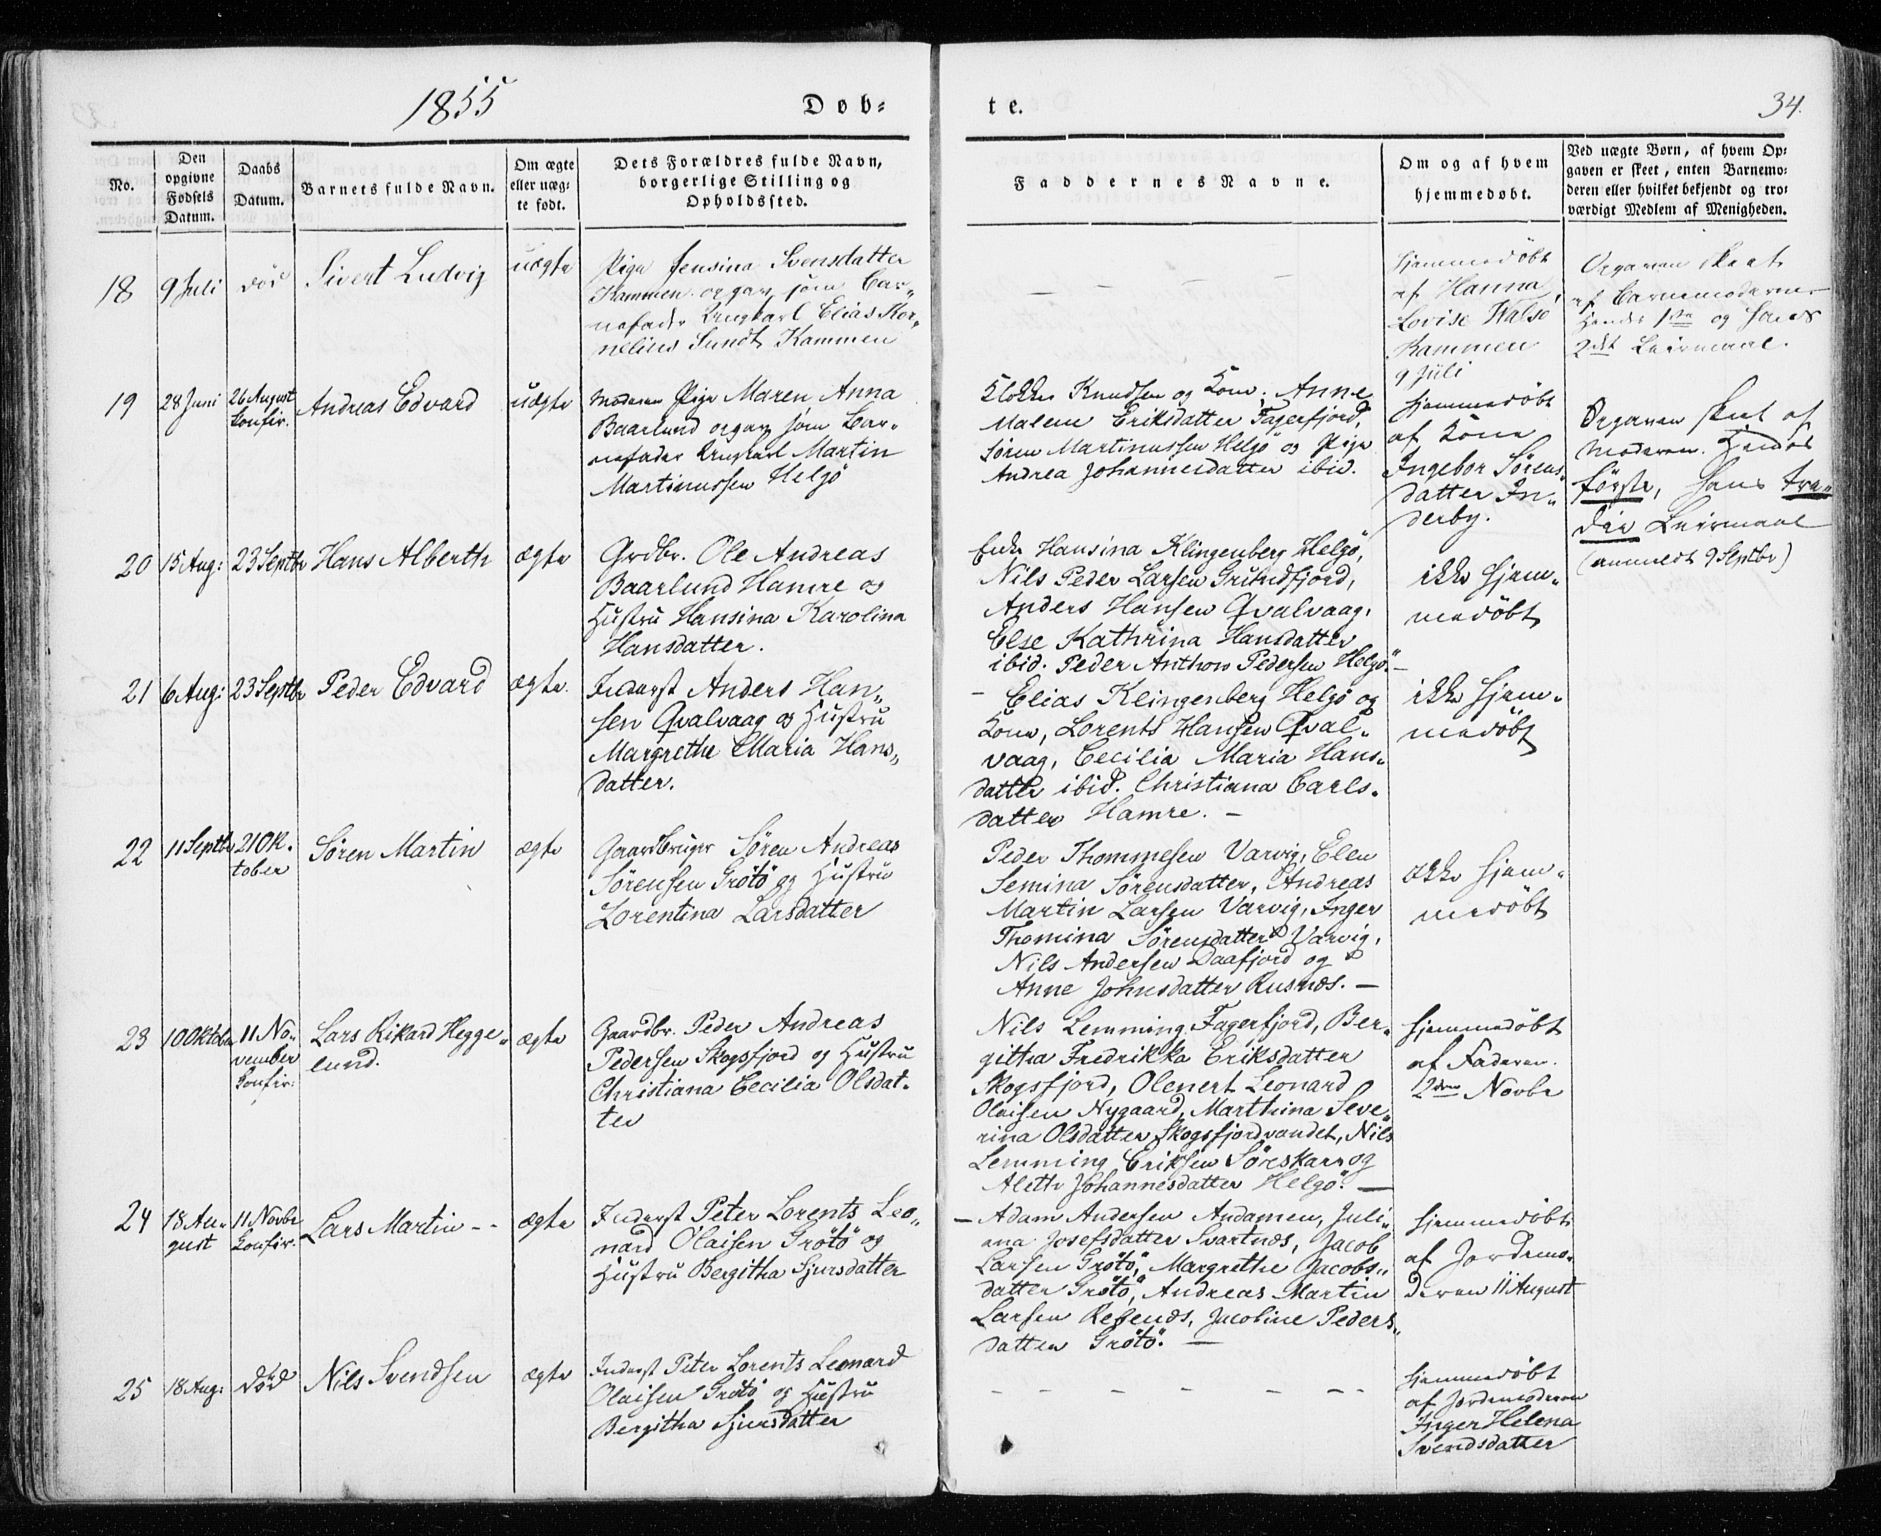 1855
Døb-
te.
34.
No.
Den
opgivne
Fødsels
Datum.
Daabs
Datum.
Barnets fulde Navn.
Om ægte
eller uæg-
te født.
Dets Forældres fulde Navn,
borgerlige Stilling og
Opholdssted.
Faddernes Navne.
Om og af hvem
hjemmedøbt.
Ved uægte Børn, af hvem Op-
gaven er skeet, enten Barnemo-
deren eller hvilket bekjendt og tro-
værdigt Medlem af Menigheden.
18
9 Juli
død
Sivert Ludvig
uægte
Pige Jensina Svensdatter
Kammen opgav som Bar-
nefader Ungkarl Elias Kor-
nelius Sundt Kammen
- - - - -
Hjemmedøbt
af Hanna
Lovise Walsø
Kammen
9 Juli
Opgaven skeet
af Barnemoderen
Hendes 1ste og hans
2det Leiermaal.
19
28 Juni
26 August
Konfir.
Andreas Edvard
uægte
Moderen Pige Maren Anna
Baarlund opgav som Bar-
nefader Ungkarl Martin
Martinussen Helgö
Klokker Knudsen og Kone, Anne
Malene Eriksdatter Fagerfjord,
Søren Martinussen Helgö og Pige
Andrea Johannesdatter ibid.
Hjemmedøbt
af Kone
Ingebor Sørens-
datter In-
derby.
Opgaven skeet af
Moderen. Hendes
første, hans tre-
die Leiermaal
(anmeldt 9 Septbr)
20
15 Aug:
23 Septbr
Hans Alberth
ægte
Grdbr. Ole Andreas
Baarlund Hamre og
Hustru Hansina Karolina
Hansdatter.
Enke Hansina Klingenberg Helgö,
Nils Peder Larsen Grundfjord,
Anders Hansen Qvalvaag,
Else Kathrina Hansdatter
ibid. Peder Anthon Pedersen Helgö.
ikke hjem-
medøbt
21
6 Aug:
23 Septbr
Peder Edvard
ægte.
Inderst Anders Han-
sen Qvalvaag og Hustru
Margrethe Maria Hans-
datter.
- Elias Klingenberg Helgö og
Kone, Lorents Hansen Qval-
vaag, Cecilia Maria Hans-
datter ibid. Christiana Carls-
datter Hamre. -
ikke hjem-
medøbt
22
11 Septbr
21 Ok-
tober
Søren Martin
ægte
Gaardbruger Søren Andreas
Sørensen Grötö og Hustru
Lorentina Larsdatter
Peder Thommesen Varvig, Elen
Semina Sørensdatter, Andreas
Martin Larsen Varvig, Inger
Thomina Sørensdatter Varvig,
Nils Andersen Daafjord og
Anne Johnesdatter Rusnæs. -
ikke hjem-
medøbt
23
10 Oktober
11 No-
vember
Konfir:
Lars Rikard Hegge-
lund.
ægte
Gaardbr. Peder Andreas
Pedersen Skogsfjord og Hustru
Christiana Cecilia Olsdat-
ter
Nils Lemming Fagerfjord, Ber-
githa Fredrikka Eriksdatter
Skogsfjord, Olenert Leonard
Olaisen Nygaard, Marthina Seve-
rina Olsdatter Skogsfjordvandet, Nils
Lemming Eriksen Sörskar og
Aleth Johannesdatter Helgö. -
hjemmedøbt
af Faderen.
2den Novbr
24
18 Au-
gust
11 Novbr
Konfir.
Lars Martin - -
ægte
Inderst Peter Lorents Leo-
nard Olaisen Grötö og
Hustru Bergitha Sjursdatter
- Adam Andersen Andamen, Juli-
ana Josefsdatter Svartnæs, Jacob
Larsen Grötö, Margrethe Jacobs-
datter Grötö, Andreas Martin
Larsen Refsnæs, Jacobine Peders-
datter Grötö. -
hjemmedøbt
af Jordemo-
deren 11 August
25
18 Aug:
død
Nils Svendsen
ægte
Inderst Peter Lorents Leonard
Olaisen Grötö og Hustru
Bergitha Sjursdatter
- - - - - - -
hjemmedøbt
af Jordemoderen
Inger Helena
Svendsdatter